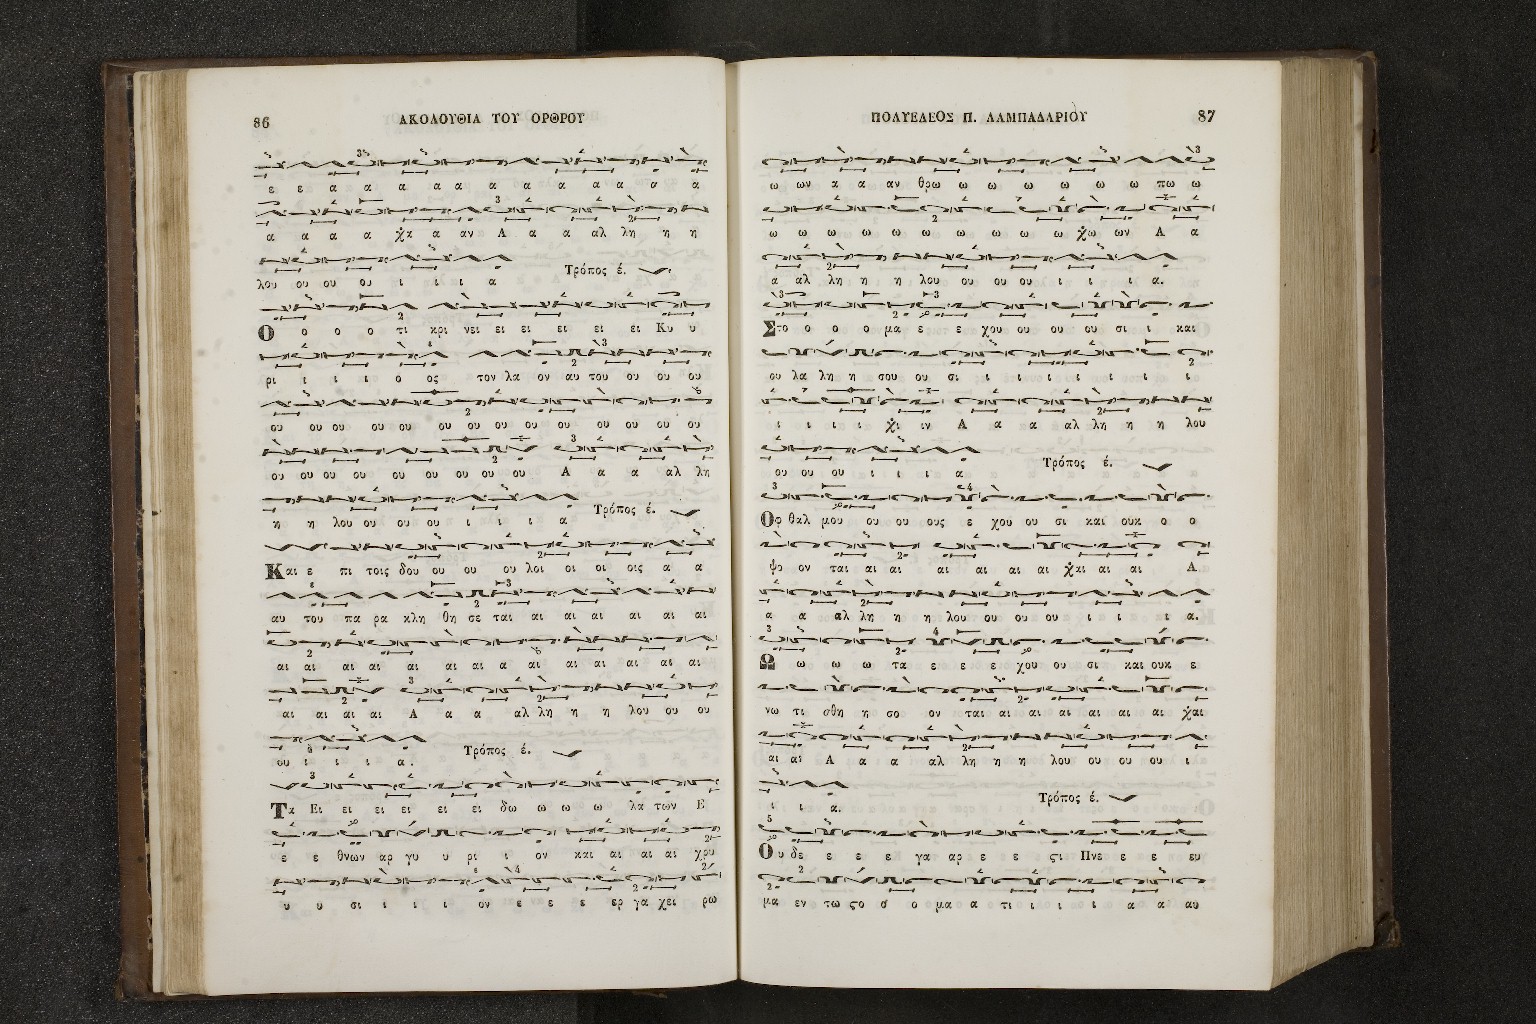 86 ΑΚΟΛΟΥΘΙΑ ΤΟΥ ΟΡΘΡΟΥ
ε ε α α α α α α α α α α α α
α α α α χα α αν Α α α αλ λη η η
λου ου ου ου ι ι ι α Τρόπος έ.
Ο ο ο ο τι κρι νει ει ει ει ει ει Κυ υ
ρι ι ι ι ο ος τον λα ον αυ του ου ου ου
ου ου ου ου ου ου ου ου ου ου ου ου ου ου
ου ου ου ου ου ου ου ου ου Α α α αλ λη
η η λου ου ου ου ι ι ι α Τρόπος έ.
Και ε πι τοις δου ου ου ου λοι οι οι οις α α
αυ του πα ρα κλη θη σε ται αι αι αι αι αι αι
αι αι αι αι αι αι αι α αι αι αι αι αι αι
αι αι αι αι Α α α αλ λη η η λου ου ου
ου ι ι ι α. Τρόπος έ.
Τα Ει ει ει ει ει ει δω ω ω ω λα των Ε
ε ε θνων αρ γυ υ ρι ι ον και αι αι αι χρυ
υ υ σι ι ι ι ον ε ε ε ερ γα χει ρω
ΠΟΛΥΕΛΕΟΣ Π. ΛΑΜΠΑΔΑΡΙΟΥ 87
ω ων α α αν θρω ω ω ω ω ω ω πω ω
ω ω ω ω ω ω ω ω ω ω χω ων Α α
α αλ λη η η λου ου ου ου ι ι ι α.
Στο ο ο ο μα ε ε χου ου ου ου σι ι και
ου λα λη η σου ου σι ι ι ι ι ι ι ι
ι ι ι ι χι ιν Α α α αλ λη η η λου
ου ου ου ι ι ι α Τρόπος έ.
Οφ θαλ μου ου ου ους ε χου ου σι και ουκ ο ο
ψο ον ται αι αι αι αι αι αι χαι αι αι Α
α α αλ λη η η λου ου ου ου ι ι ι α.
Ω ω ω ω τα ε ε ε χου ου σι και ουκ ε
νω τι σθη η σο ον ται αι αι αι αι αι αι χαι
αι αι Α α α αλ λη η η λου ου ου ου ι
ι ι α. Τρόπος έ.
Ου δε ε ε ε γα αρ ε ε ϛι Πνε ε ε ευ
μα εν τω ϛο ο ο μα α τι ι ι ι α α αυ